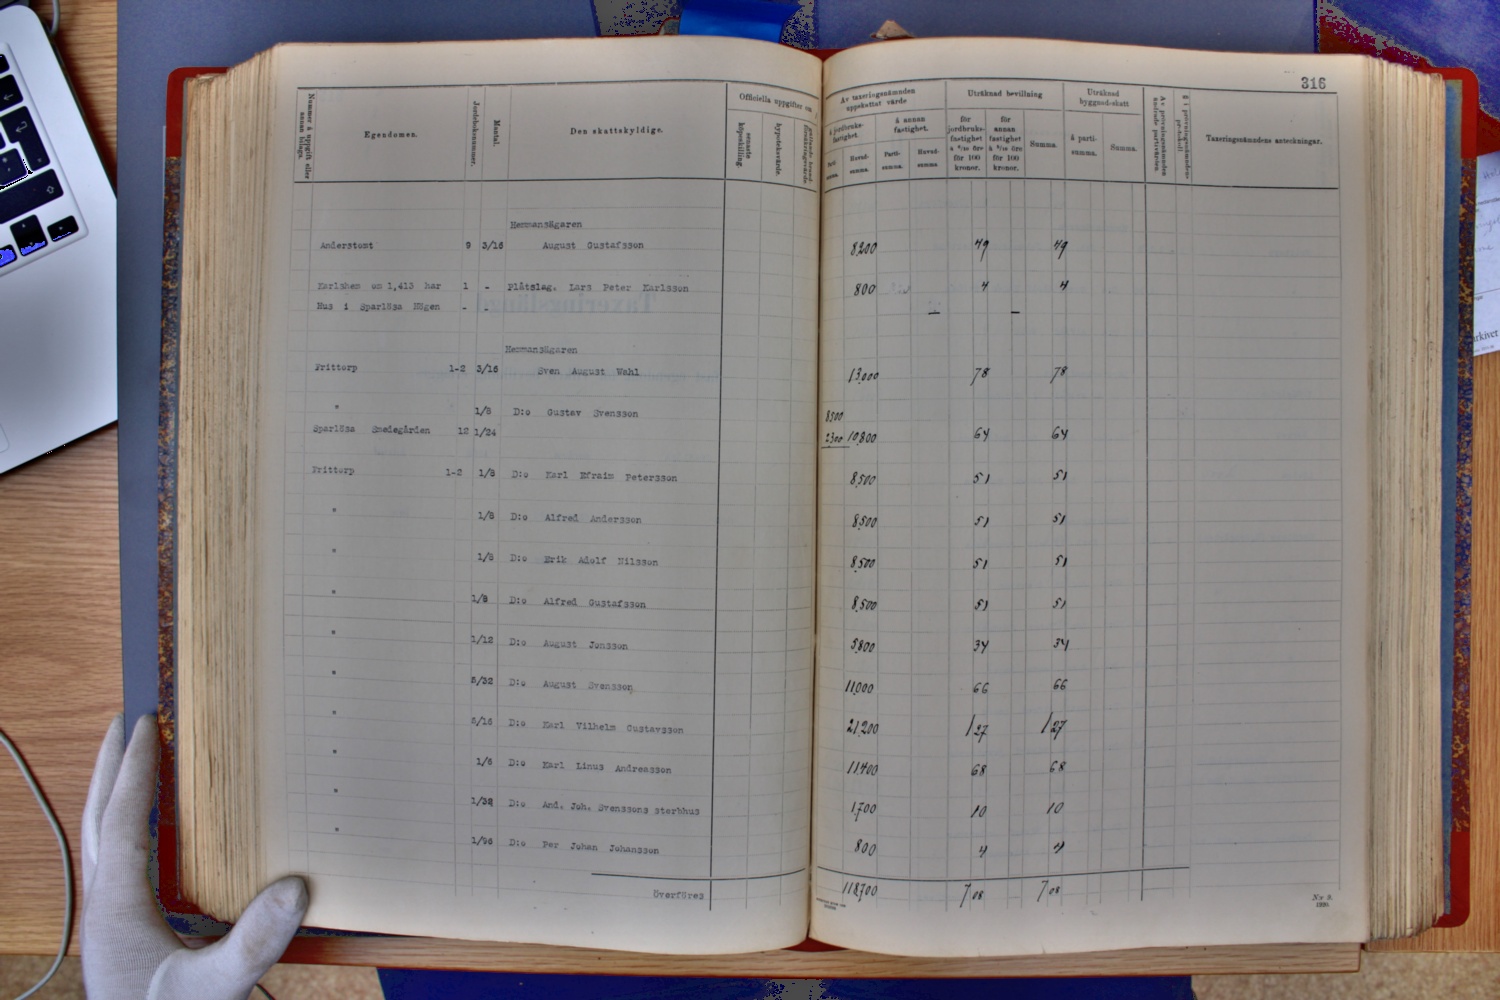 316
Nummer å uppgift eller annan bilaga.
Egendomen.
Jordeboksnummer.
Mantal.
Den skattskyldige.
Officiella uppgifter om
senaste köpeskilling.
hypoteksvärde.
Av taxeringsnämnden uppskattat värde
å jordbruksfastighet.
å annan fastighet.
Parti- summa.
Huvud- summa.
Parti- summa.
Huvud- summa.
Uträknad bevillning
för jordbruksfastighet à 6/10 öre för 100 kronor.
för annan fastighet à 5/10 öre för 100 kronor.
Summa.
Uträknad byggnadsskatt
å parti- summa.
Summa.
Taxeringsnämndens anteckningar.
Hemmansägaren
Anderstomt 9 3/16 August Gustafsson 8,200 49 49
Karlshem om 1,413 har 1 - Plåtslag. Lars Peter Karlsson 800 4 4
Hus i Sparlösa Högen - - — —
Hemmansägaren
Frittorp 1-2 3/16 Sven August Wahl 13,000 78 78
" 1/8 D:o Gustav Svensson 8500
Sparlösa Smedegården 12 1/24 2300 10,800 64 64
Frittorp 1-2 1/8 D:o Karl Efraim Petersson 8,500 51 51
" 1/8 D:o Alfred Andersson 8,500 51 51
" 1/8 D:o Erik Adolf Nilsson 8,500 51 51
" 1/8 D:o Alfred Gustafsson 8,500 51 51
" 1/12 D:o August Jonsson 5,800 34 34
" 5/32 D:o August Svensson 11,000 66 66
" 5/16 D:o Karl Vilhelm Gustavsson 21,200 1 27 1 27
" 1/6 D:o Karl Linus Andreasson 11,400 68 68
" 1/32 D:o And. Joh. Svenssons sterbhus 1,700 10 10
" 1/96 D:o Per Johan Johansson 800 4 4
Överföres 118,700 7 08 7 08